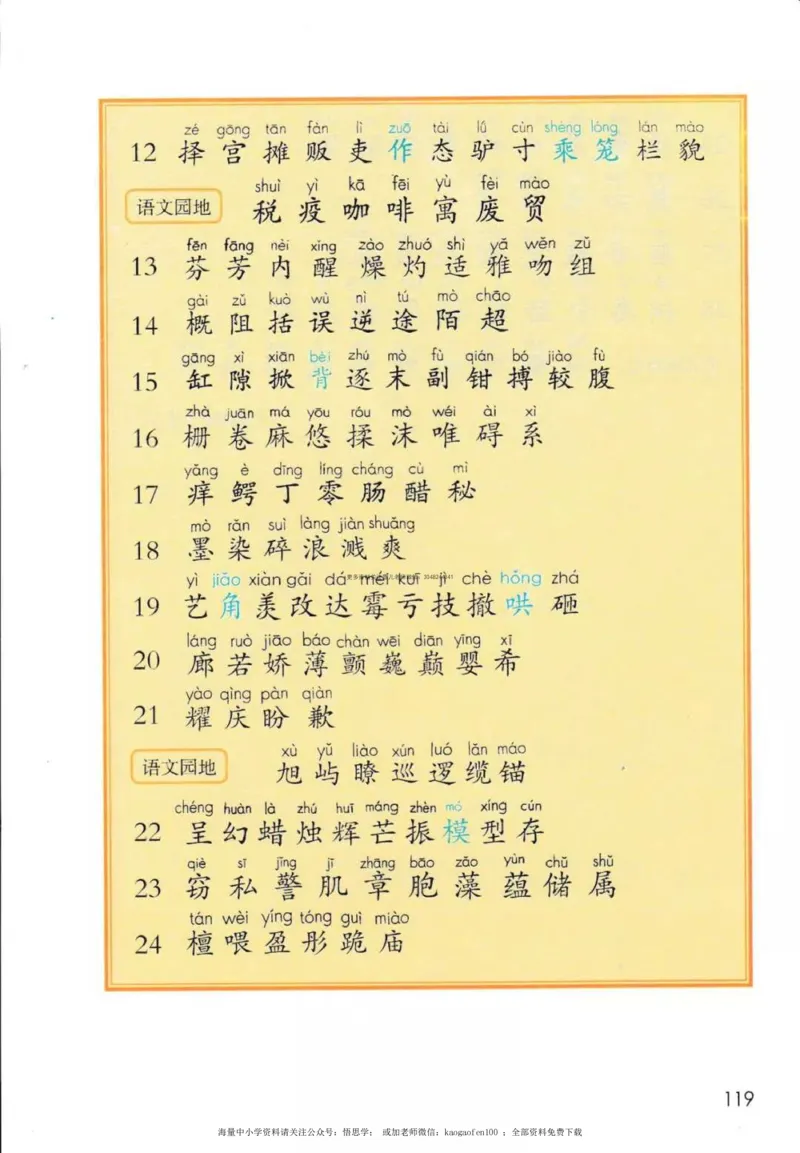 zé gōng tān fàn lì zuō tài lǘ cùn shèng lóng lán mào
12 择 宫 摊 贩 吏 作 态 驴 寸 乘 笼 栏 貌
shuì yì kā fēi yù fèi mào
语文园地 税 疫 咖 啡 寓 废 贸
fēn fāng nèi xǐng zào zhuó shì yǎ wěn zǔ
13 芬 芳 内 醒 燥 灼 适 雅 吻 组
gài zǔ kuò wù nì tú mò chāo
14 概 阻 括 误 逆 途 陌 超
gāng xì xiān bèi zhú mò fù qián bó jiào fù
15 缸 隙 掀 背 逐 末 副 钳 搏 较 腹
zhà juǎn má yōu róu mò wéi ài xì
16 栅 卷 麻 悠 揉 沫 唯 碍 系
yǎng è dīng líng cháng cù mì
17 痒 鳄 丁 零 肠 醋 秘
mò rǎn suì làng jiàn shuǎng
18 墨 染 碎 浪 溅 爽
yì jiǎo xiàn gǎi dá méi kuī jì chè hǒng zhá
19 艺 角 羡 改 达 霉 亏 技 撤 哄 砸
láng ruò jiāo báo chàn wēi diān yīng xī
20 廊 若 娇 薄 颤 巍 巅 婴 希
yào qìng pàn qiàn
21 耀 庆 盼 歉
xù yǔ liào xún luó lǎn máo
语文园地 旭 屿 瞭 巡 逻 缆 锚
chéng huàn là zhú huī máng zhèn mó xíng cún
22 呈 幻 蜡 烛 辉 芒 振 模 型 存
qiè sī jǐng jī zhāng bāo zǎo yùn chǔ shǔ
23 窃 私 警 肌 章 胞 藻 蕴 储 属
tán wèi yíng tóng guì miào
24 檀 喂 盈 彤 跪 庙
119
海量中小学资料请关注公众号：悟思学； 或加老师微信：kaogaofen100 ；全部资料免费下载